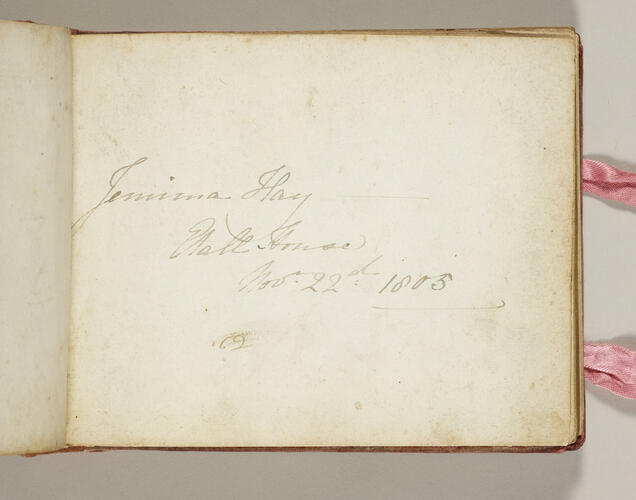 Jemima Hay
Etall House
Novr. 22d. 1805